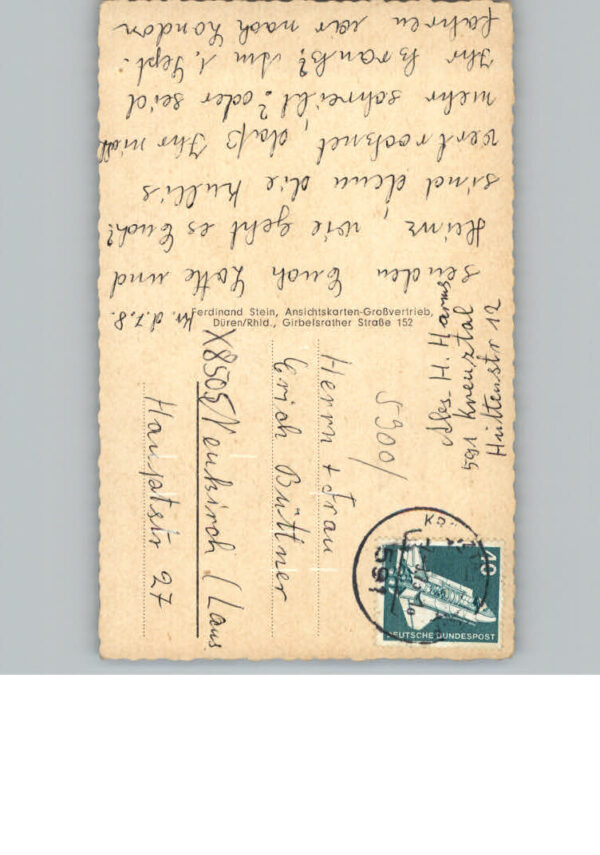 Kr. d. 7.8.
senden Euch Lotte und
Heinz, wie geht es Euch?
sind denn die Kullis
vertrocknet, daß Ihr nicht
mehr schreibt? oder seid
Ihr krank? Am 1. Sept.
fahren wir nach London
Ferdinand Stein, Ansichtskarten-Großvertrieb,
Düren/Rhld., Girbelsrather Straße 152
Abs. H. Harms
591 Kreuztal
Hüttenstr 12
40
DEUTSCHE BUNDESPOST
591
Herrn + Frau
Erich Büttner
X8505/Neukirch (Laus
Hauptstr 27